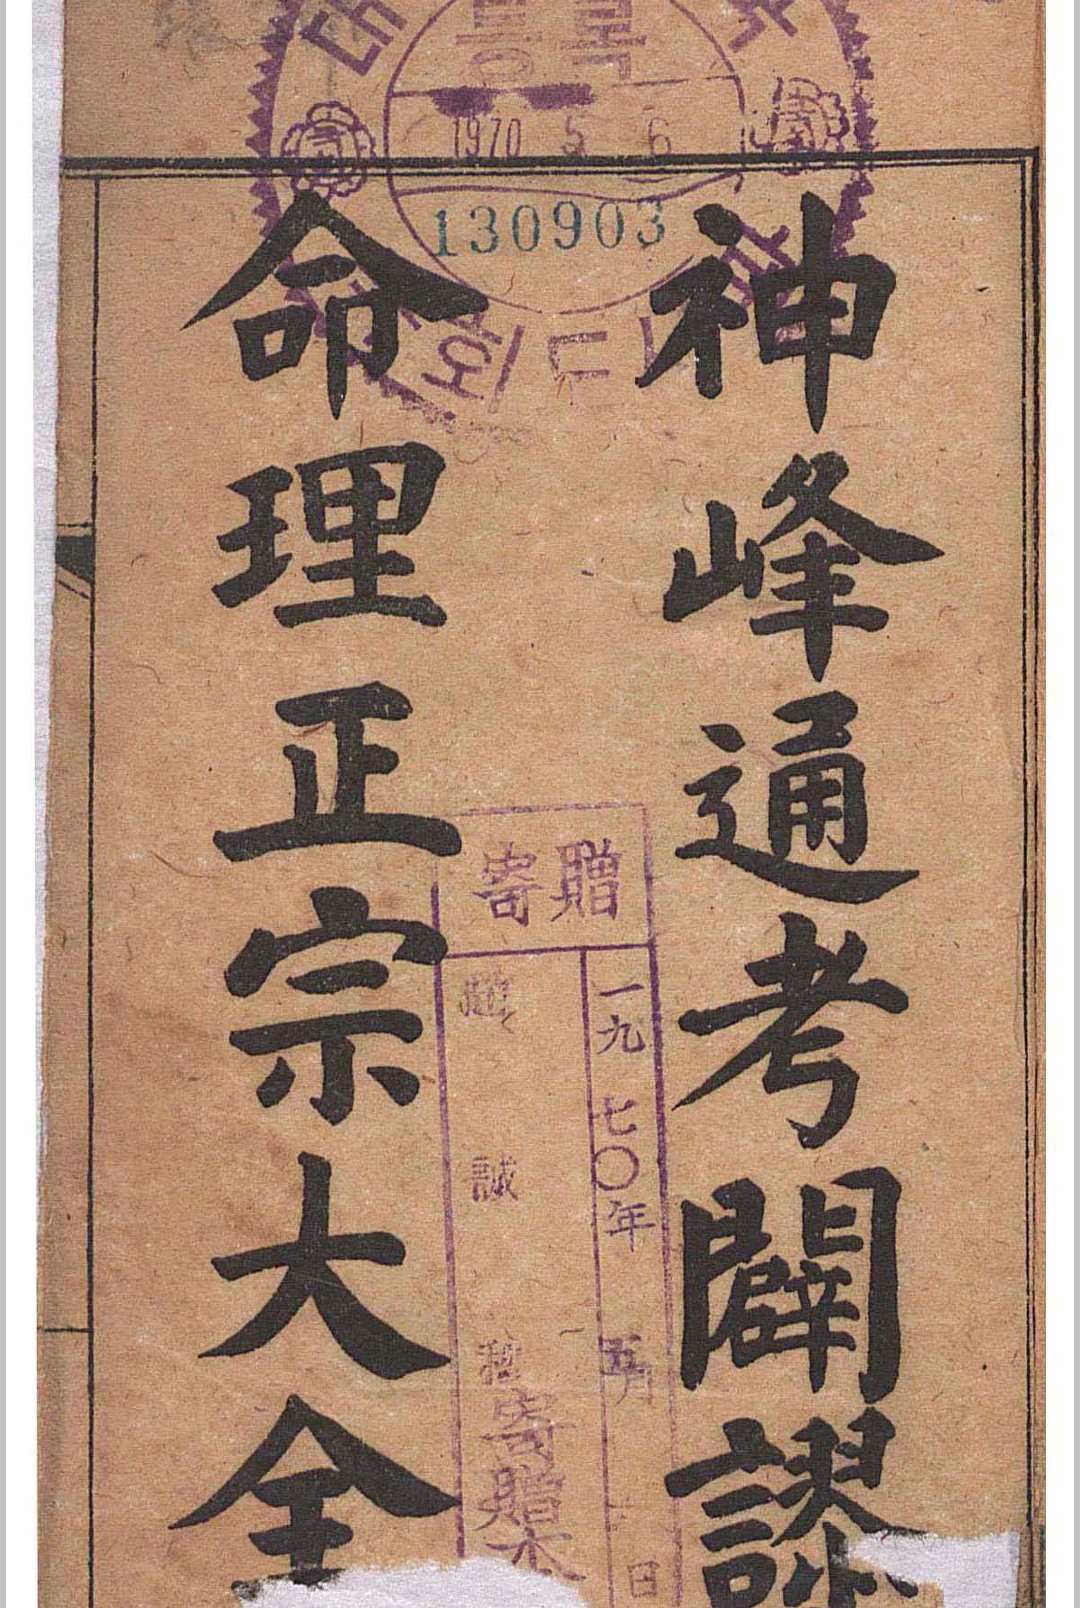 神峰通考闢謬
命理正宗大全
등록
1970 5 6
130903
국회도
寄贈
一九七〇年 五月 日
誠
寄贈本